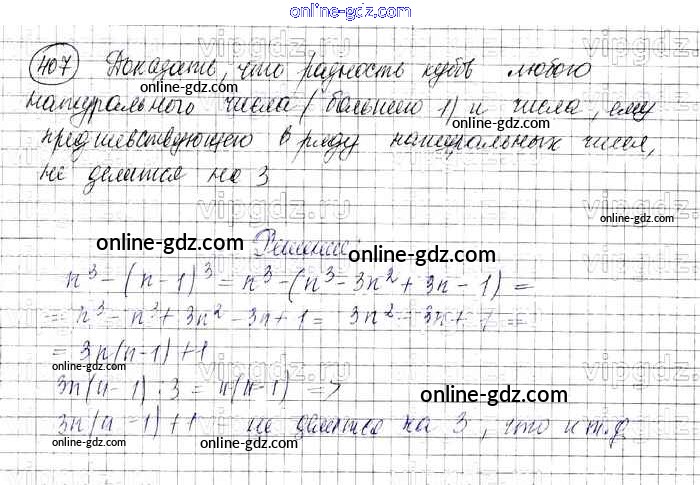 online-gdz.com
407 Доказать, что разность кубов любого
натурального числа (большего 1) и числа, ему
предшевствующего в ряду натуральных чисел,
не делится на 3
Решение:
n³ - (n - 1)³ = n³ - (n³ - 3n² + 3n - 1) =
= n³ - n³ + 3n² - 3n + 1 = 3n² - 3n + 1 =
= 3n(n-1) + 1
3n(n-1) : 3 = n(n-1) =>
3n(n-1) + 1 не делится на 3, что и т.д.
vipgdz.ru
online-gdz.com
online-gdz.com
online-gdz.com
online-gdz.com
online-gdz.com
online-gdz.com
online-gdz.com
online-gdz.com